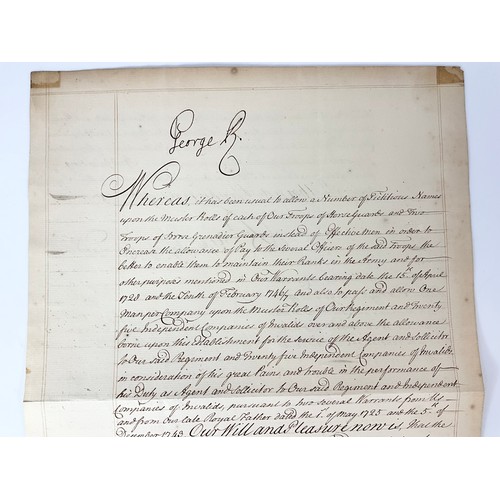 George R.
Whereas, it has been usual to allow a Number of Fictitious Names
upon the Muster Rolls of each of Our Troops of Horse Guards and Two
Troops of Horse Grenadier Guards instead of Effective men in order to
Encrease the allowance of Pay to the several Officers of the said Troops the
better to enable them to maintain their Ranks in the Army and for
other purposes mentioned in Our Warrants bearing date the 15th of April
1728 and the Tenth of February 1746/7 and also to pass and allow One
Man per Company upon the Muster Rolls of Our Regiment and Twenty
five Independent Companies of Invalids over and above the allowance
borne upon this Establishment for the service of the Agent and Sollicitor
to Our said Regiment and Twenty five Independent Companies of Invalids,
in consideration of his great Pains and trouble in the performance of
his Duty as Agent and Sollicitor to Our said Regiment and Independent
Companies of Invalids, pursuant to two several Warrants from Us
and from Our late Royal Father dated the 1st of May 1725 and the 5th of
December 1749 Our Will and Pleasure now is, that the